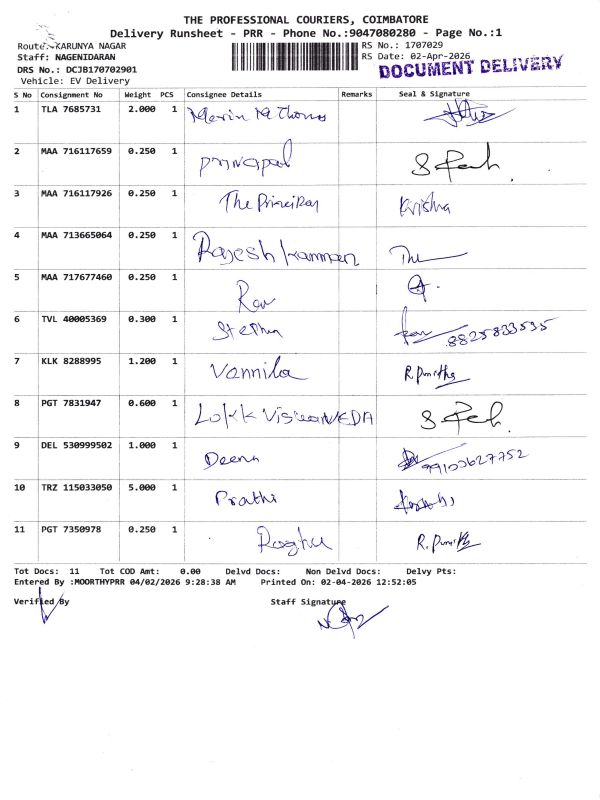 THE PROFESSIONAL COURIERS, COIMBATORE
Delivery Runsheet - PRR - Phone No.:9047080280 - Page No.:1
Route: KARUNYA NAGAR
RS No.: 1707029
Staff: NAGENIDARAN
RS Date: 02-Apr-2026
DOCUMENT DELIVERY
DRS No.: DCJB170702901
Vehicle: EV Delivery
S No Consignment No Weight PCS Consignee Details Remarks Seal & Signature
1 TLA 7685731 2.000 1 Merin M Thomas
2 MAA 716117659 0.250 1 principal
3 MAA 716117926 0.250 1 The Principal Krishna
4 MAA 713665064 0.250 1 Rajesh kannan
5 MAA 717677460 0.250 1
6 TVL 40005369 0.300 1 Stephen 8825833535
7 KLK 8288995 1.200 1 Vannila
8 PGT 7831947 0.600 1
9 DEL 530999502 1.000 1 Deena
10 TRZ 115033050 5.000 1 Prathi
11 PGT 7350978 0.250 1 Raghu
Tot Docs: 11 Tot COD Amt: 0.00 Delvd Docs: Non Delvd Docs: Delvy Pts:
Entered By :MOORTHYPRR 04/02/2026 9:28:38 AM Printed On: 02-04-2026 12:52:05
Verified By Staff Signature